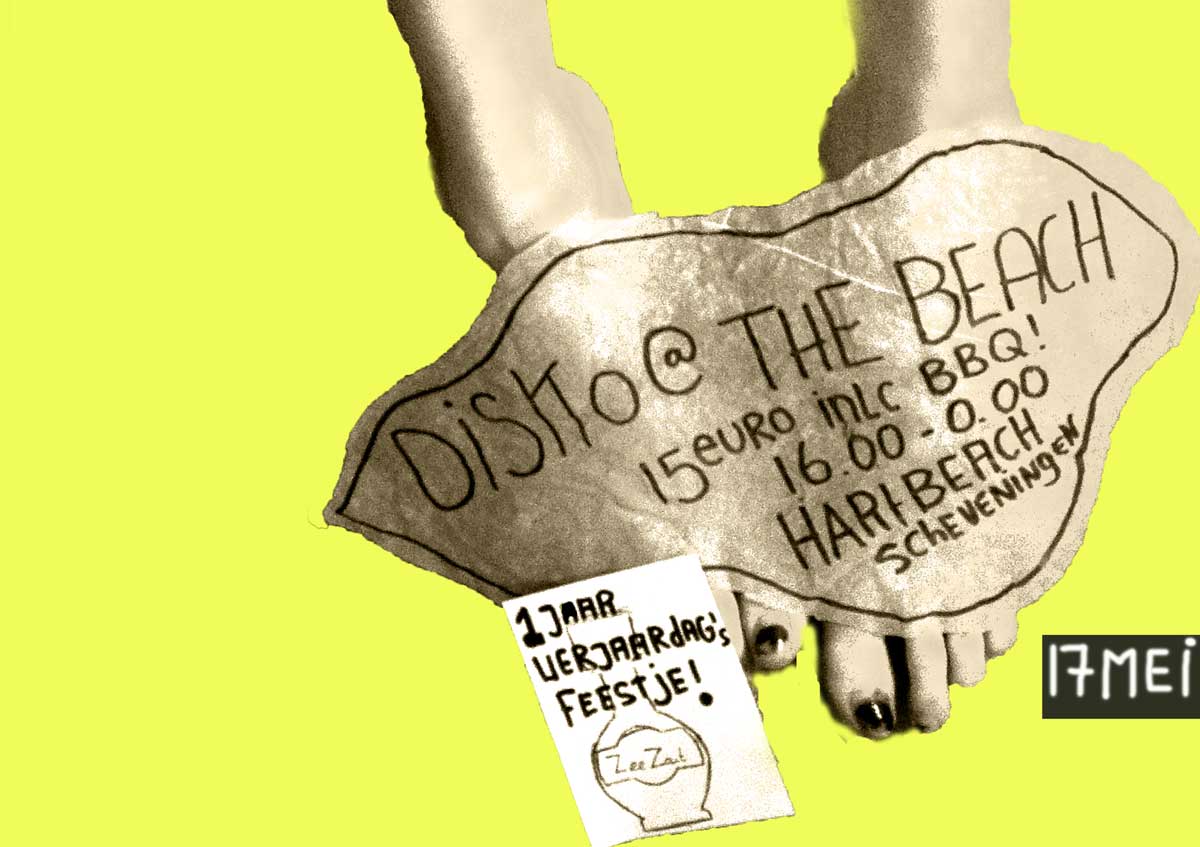 DiSKO @ THE BEACH
15 EURO inLc BBQ!
16.00 - 0.00
HARtBEACH
SCHEVENINgEN
1 JAAR
VERJAARdAG's
FEEStjE!
ZeeZout
17 MEi